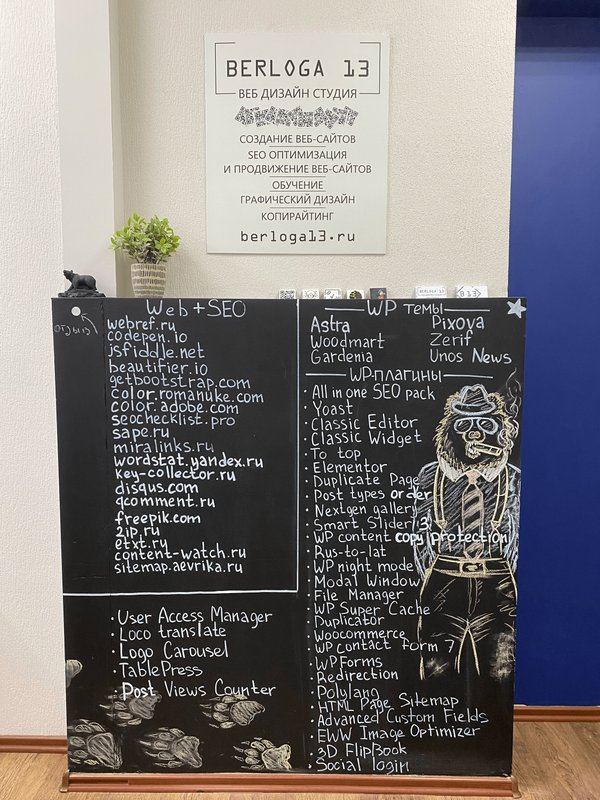 BERLOGA 13
ВЕБ ДИЗАЙН СТУДИЯ
СОЗДАНИЕ ВЕБ-САЙТОВ
SEO ОПТИМИЗАЦИЯ
И ПРОДВИЖЕНИЕ ВЕБ-САЙТОВ
ОБУЧЕНИЕ
ГРАФИЧЕСКИЙ ДИЗАЙН
КОПИРАЙТИНГ
berloga13.ru
BERLOGA 13
B13
Web + SEO
webref.ru
codepen.io
jsfiddle.net
beautifier.io
getbootstrap.com
color.romanuke.com
color.adobe.com
seochecklist.pro
sape.ru
miralinks.ru
wordstat.yandex.ru
key-collector.ru
disqus.com
qcomment.ru
freepik.com
2ip.ru
etxt.ru
content-watch.ru
sitemap.aevrika.ru
· User Access Manager
· Loco translate
· Logo Carousel
· TablePress
· Post Views Counter
WP темы
Astra Pixova
Woodmart Zerif
Gardenia Unos News
WP-плагины
· All in one SEO pack
· Yoast
· Classic Editor
· Classic Widget
· To top
· Elementor
· Duplicate Page
· Post types order
· Nextgen gallery
· Smart Slider 3
· WP content copy protection
· Rus-to-lat
· WP night mode
· Modal Window
· File Manager
· WP Super Cache
· Duplicator
· Woocommerce
· WP contact form 7
· WPForms
· Redirection
· Polylang
· HTML Page Sitemap
· Advanced Custom Fields
· EWW Image Optimizer
· 3D FlipBook
· Social login